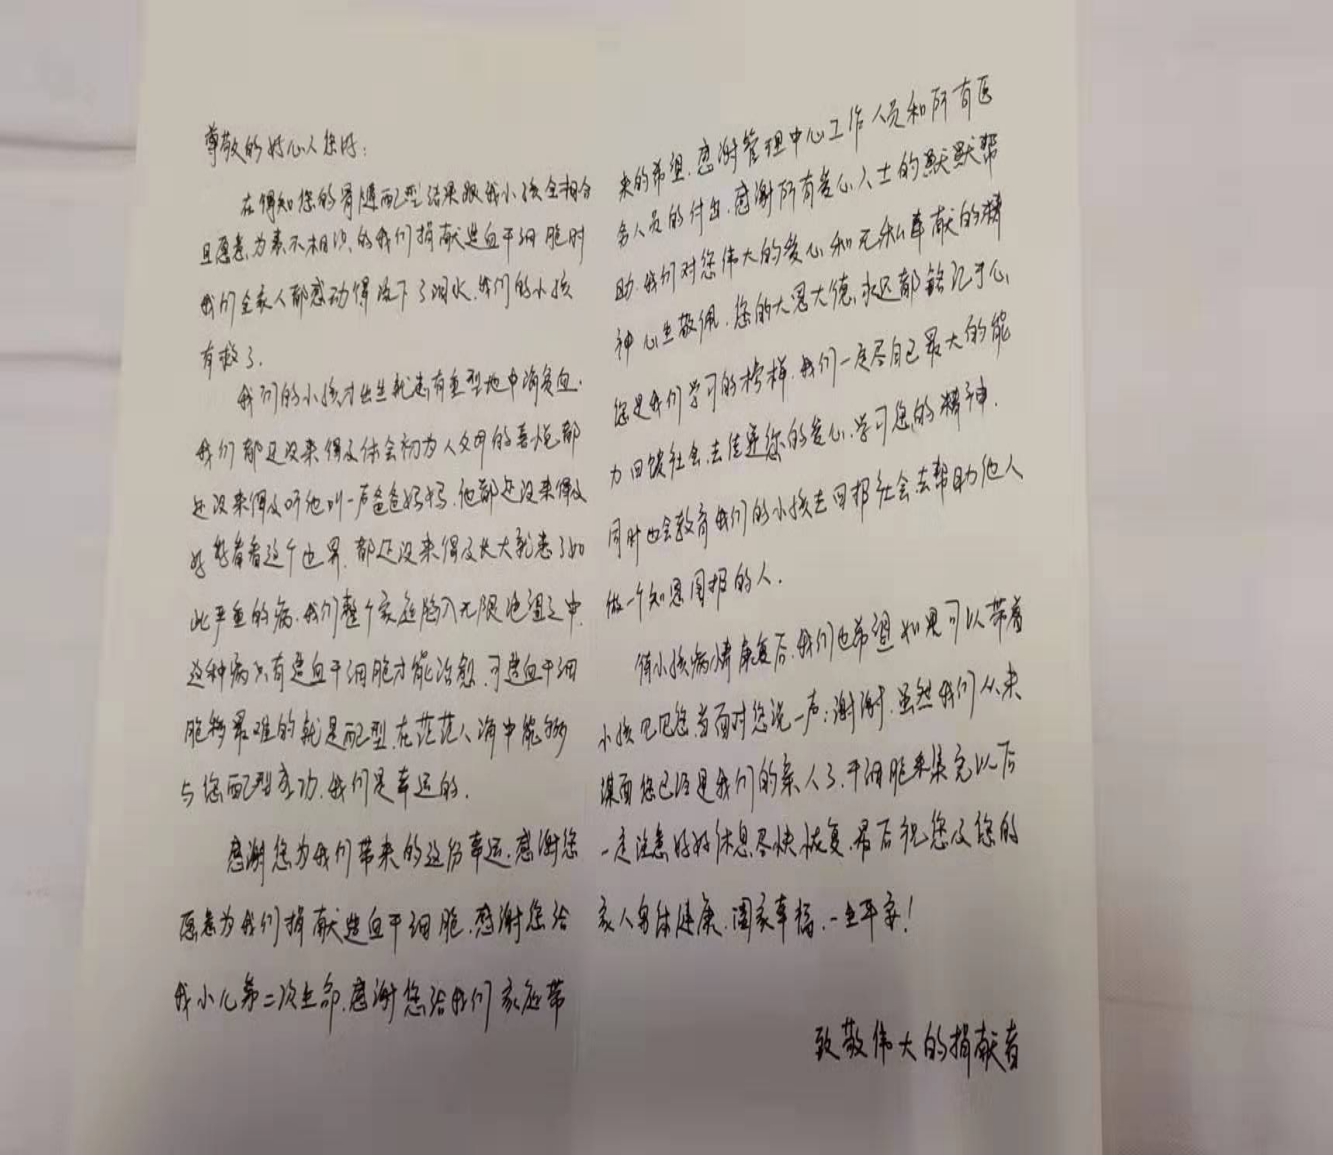 尊敬的好心人您好：
在得知您的骨髓配型结果跟我小孩全相合
且愿意为素不相识的我们捐献造血干细胞时
我们全家人都感动得流下了泪水.我们的小孩
有救了.
我们的小孩才出生就患有重型地中海贫血.
我们都还没来得及体会初为人父母的喜悦都
还没来得及听他叫一声爸爸妈妈.他都还没来得及
好好看看这个世界.都还没来得及长大就患了如
此严重的病.我们整个家庭陷入无限绝望之中.
这种病只有造血干细胞才能治愈.可造血干细
胞移最难的就是配型.在茫茫人海中能够
与您配型成功.我们是幸运的.
感谢您为我们带来的这份幸运.感谢您
愿意为我们捐献造血干细胞.感谢您给
我小儿第二次生命.感谢您给我们家庭带
来的希望.感谢管理中心工作人员和所有医
务人员的付出.感谢所有爱心人士的默默帮
助.我们对您伟大的爱心和无私奉献的精
神心生敬佩.您的大恩大德,永远都铭记于心
您是我们学习的榜样.我们一定尽自己最大的能
力回馈社会.去传递您的爱心.学习您的精神.
同时也会教育我们的小孩去回报社会去帮助他人
做一个知恩图报的人.
待小孩病情康复后.我们也希望如果可以带着
小孩见见您.当面对您说一声:谢谢.虽然我们从未
谋面您已经是我们的亲人了.干细胞采集完以后
一定注意好好休息尽快恢复.最后祝您及您的
家人身体健康.阖家幸福.一生平安!
致敬伟大的捐献者